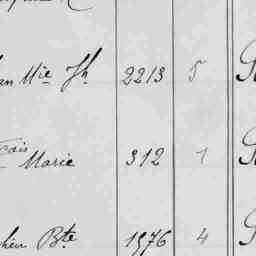 an Mie Jh 2213 5
çois Marie 312 1
hieu Bte 1976 4